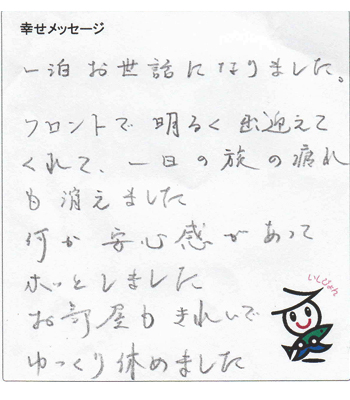 幸せメッセージ
一泊お世話になりました。
フロントで明るく出迎えて
くれて、一日の旅の疲れ
も消えました
何か安心感があって
ホッとしました
いしぴょん
お部屋もきれいで
ゆっくり休めました